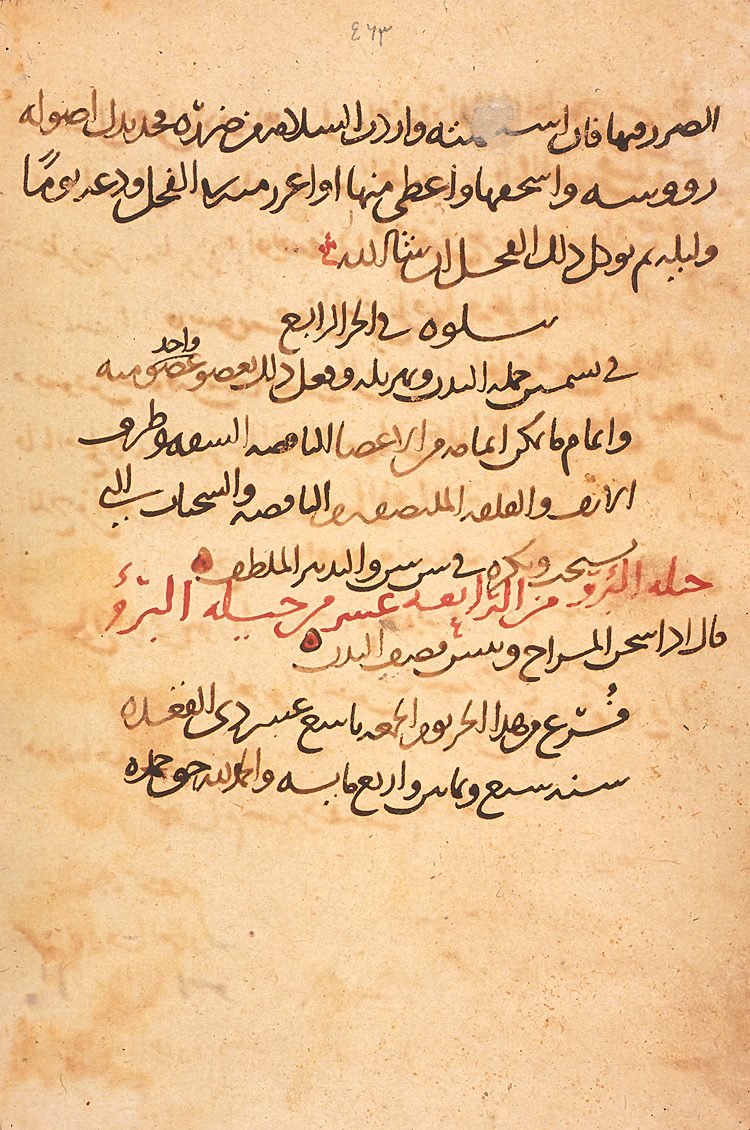 ٤٦٣
الضرر فيها فان واردت السلامة من ضرره فخد بدل اصوله
رووسه واسحقها واعطي منها او اغرز منه الفجل ودعه يومًا
وليلة ثم يوكل ذلك الفجل ان شا الله
يتلوه في الجز الرابع
في تسمين جملة البدن وتهزيله وفعل ذلك بعضو عضو واحد منه
واتمام ما يمكن اتمامه من الاعضا الناقصة الشفه وطرف
الانف والقلفه الملتصقة والناقصة والسحنات التي
تستحب وتكره في سن سن والتدبير الملطف
حيلة البرؤ من الرابعه عشر من حيلة البرؤ
قال اذا اسخن المزاج ويبس قضف البدن
فُرّغ من هذا الجزو يوم الجمعه تاسع عشر ذي القعده
سنة سبع وثمانين واربع مايه والحمد لله حق حمده